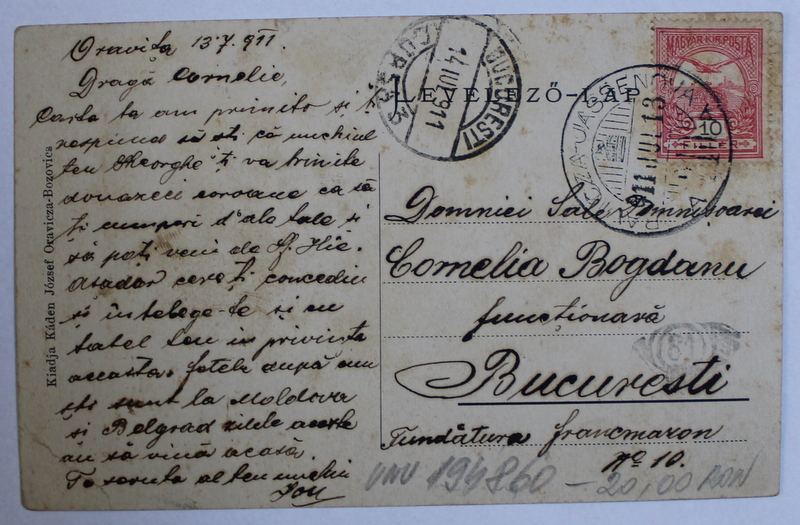 Oravița 13.7.911.
Dragă Cornelie,
Carta ta am primito și ți
respund să sti că unchiul
teu Gheorghe ți va trimite
douazeci coroane ca să
ți cumperi d'ale tale și
să poți veni de Sf. Ilie.
Așadar cere ți concediu
și întelege-te și cu
tatel teu in privința
aceasta. fetele după cum
sti sunt la Moldova
și Belgrad zilele aceste
au să vină acasă.
Te seruta al teu unchiu
Kiadja Káden József Oravicza-Bozovics
LEVELEZŐ-LAP
BUCURESTI
14 IUL 911
MAGYAR KIR. POSTA
10
FILLER
ORAVICZA-JASSENOVA
911 JUL 13
Domniei Sale Domnișoarei
Cornelia Bogdanu
funcționară
București
Fundătura francmazon
No 10.
81
UNU 194860 – 20,00 RON